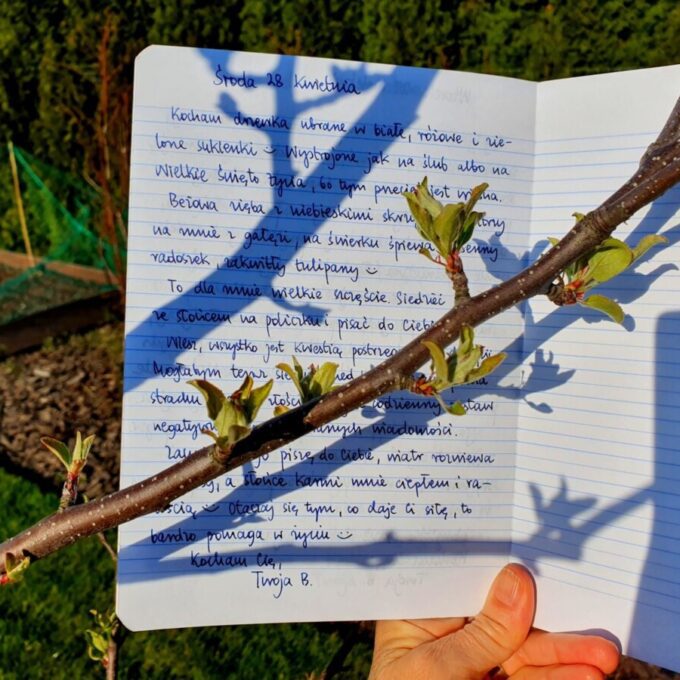 Środa 28 kwietnia
Kocham drzewka ubrane w białe, różowe i zie-
lone sukienki Wystrojone jak na ślub albo na
Wielkie Święto Życia, bo tym przecież jest wiosna.
Beżowa zięba z niebieskimi
na mnie z gałęzi, na świerku śpiewa
radosnek, zakwitły tulipany
To dla mnie wielkie szczęście. Siedzieć
ze słońcem na policzku i pisać do Ciebie
Wiesz, wszystko jest kwestią
Mogłabym teraz
strachu codzienny
negatywn wiadomości.
piszę do Ciebie, wiatr rozwiewa
a słońce karmi mnie ciepłem i ra-
ością. Otaczaj się tym, co daje Ci siłę, to
bardzo pomaga w życiu
Kocham Cię,
Twoja B.